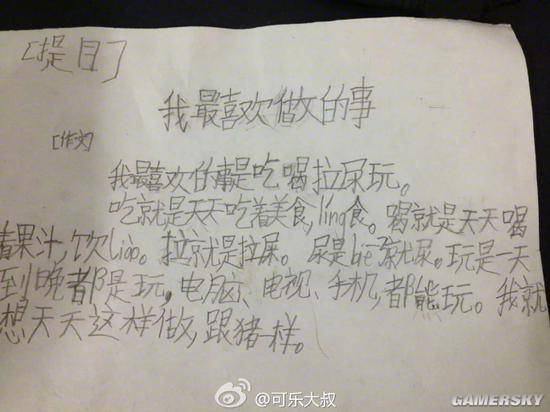 [提目]
我最喜欢做的事
[作文]
我最喜欢的事是吃喝拉尿玩。
吃就是天天吃着美食,ling食。喝就是天天喝
着果汁,饮liao。拉就是拉屎。尿是bie了就尿。玩是一天
到晚都是玩,电脑、电视、手机,都能玩。我就
想天天这样做,跟猪一样。
@可乐大叔
GAMERSKY